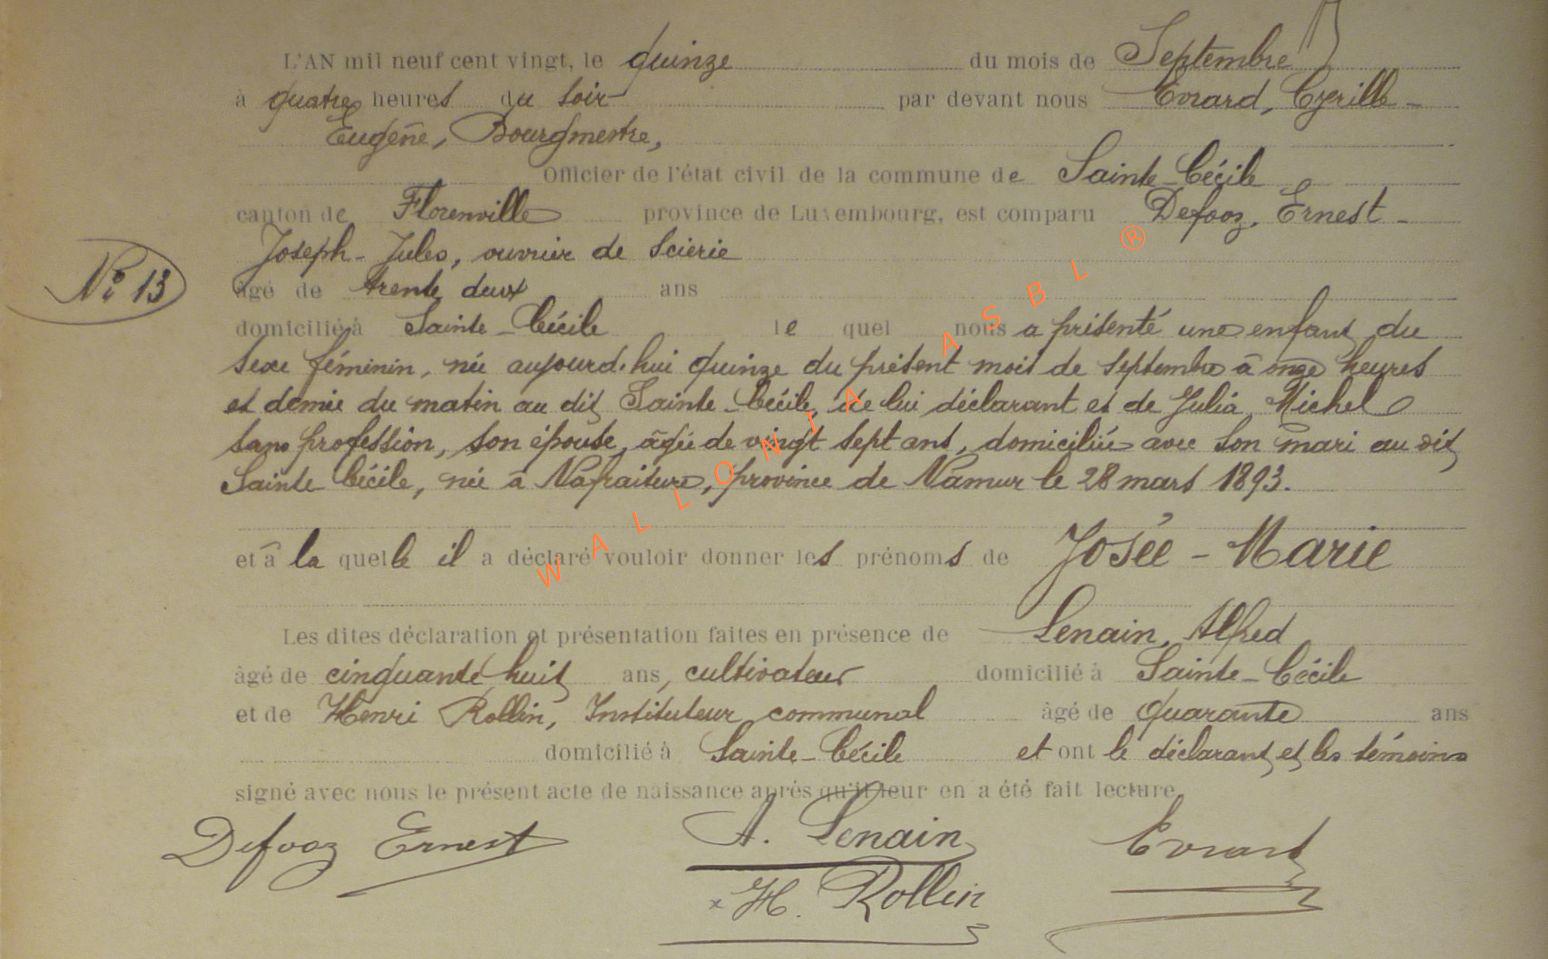 L'AN mil neuf cent vingt, le quinze du mois de Septembre
à quatre heures du soir par devant nous Evrard, Cyrille-
Eugène, Bourgmestre,
Officier de l'état civil de la commune de Sainte-Cécile
canton de Florenville province de Luxembourg, est comparu Defooz, Ernest-
Joseph-Jules, ouvrier de scierie
N° 13
âgé de trente deux ans
domicilié à Sainte-Cécile lequel nous a présenté une enfant du
sexe féminin, née aujourd'hui quinze du présent mois de septembre à onze heures
et demie du matin au dit Sainte-Cécile, de lui déclarant et de Julia Michel
sans profession, son épouse, âgée de vingt sept ans, domiciliée avec son mari au dit
Sainte Cécile, née à Nafraiture, province de Namur le 28 mars 1893.
et à laquelle il a déclaré vouloir donner les prénoms de Josée-Marie
Les dites déclaration et présentation faites en présence de Lenain, Alfred
âgé de cinquante huit ans, cultivateur domicilié à Sainte-Cécile
et de Henri Rollin, Instituteur communal âgé de quarante ans
domicilié à Sainte-Cécile et ont le déclarant et les témoins
signé avec nous le présent acte de naissance après qu'il leur en a été fait lecture
Defooz Ernest A. Lenain Evrard
H. Rollin
WALLONIA ASBL ®